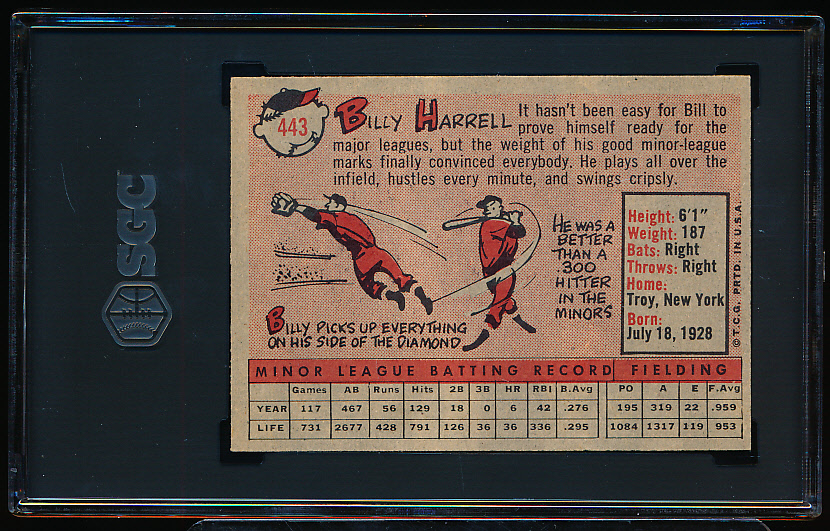 SGC
443
BILLY HARRELL
It hasn't been easy for Bill to
prove himself ready for the
major leagues, but the weight of his good minor-league
marks finally convinced everybody. He plays all over the
infield, hustles every minute, and swings cripsly.
BILLY PICKS UP EVERYTHING
ON HIS SIDE OF THE DIAMOND
HE WAS A
BETTER
THAN A
.300
HITTER
IN THE
MINORS
Height: 6'1"
Weight: 187
Bats: Right
Throws: Right
Home:
Troy, New York
Born:
July 18, 1928
© T.C.G. PRTD. IN U.S.A.
MINOR LEAGUE BATTING RECORD FIELDING
Games AB Runs Hits 2B 3B HR RBI B.Avg PO A E F.Avg
YEAR 117 467 56 129 18 0 6 42 .276 195 319 22 .959
LIFE 731 2677 428 791 126 36 36 336 .295 1084 1317 119 953